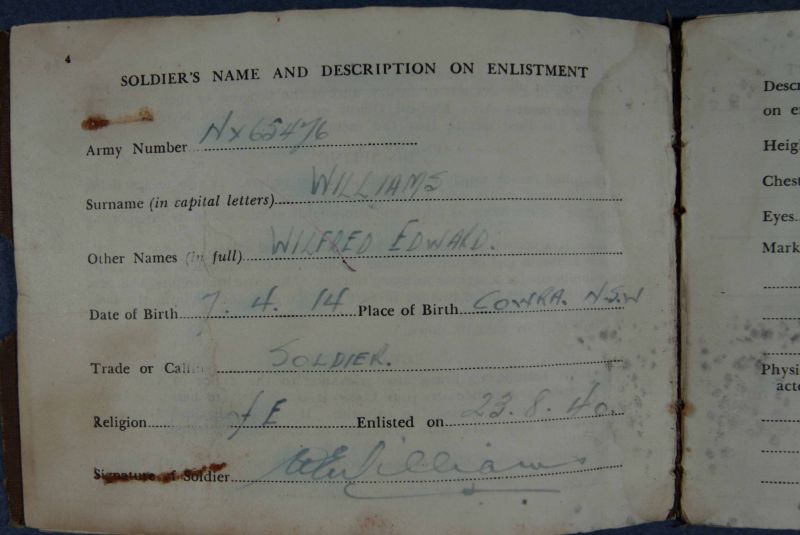 4
SOLDIER'S NAME AND DESCRIPTION ON ENLISTMENT
Army Number NX65476
Surname (in capital letters) WILLIAMS
Other Names (in full) WILFRED EDWARD.
Date of Birth 7. 4. 14 Place of Birth COWRA. N.S.W
Trade or Calling SOLDIER.
Religion E Enlisted on 23. 8. 40.
Signature of Soldier WEWilliams
Descr
on e
Heig
Chest
Eyes
Mark
Physi
acte